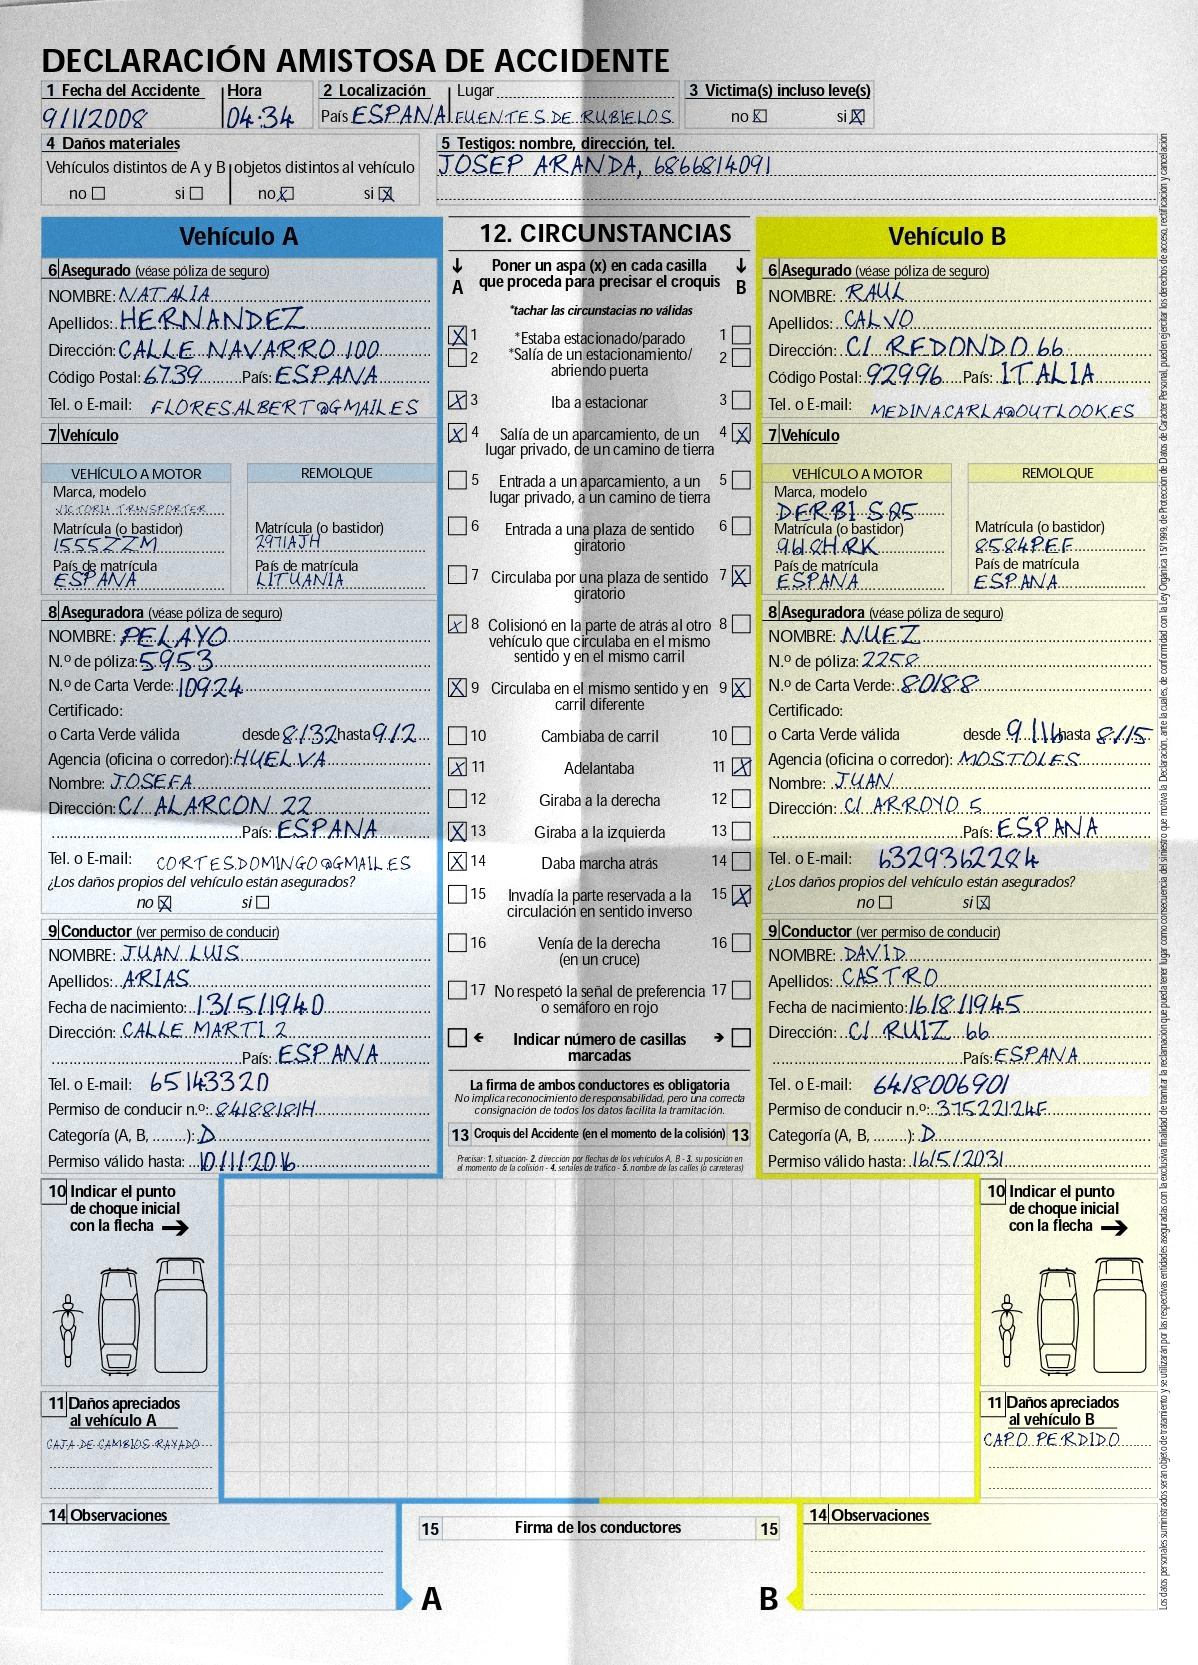 DECLARACIÓN AMISTOSA DE ACCIDENTE
1 Fecha del Accidente Hora 2 Localización Lugar 3 Victima(s) incluso leve(s)
9/1/2008 04:34 País ESPAÑA FUENTES DE RUBIELOS no si
4 Daños materiales
Vehículos distintos de A y B objetos distintos al vehículo
no si no si
5 Testigos: nombre, dirección, tel.
JOSEP ARANDA, 6866814091
Vehículo A
6 Asegurado (véase póliza de seguro)
NOMBRE: NATALIA
Apellidos: HERNANDEZ
Dirección: CALLE NAVARRO 100
Código Postal: 6739 País: ESPAÑA
Tel. o E-mail: FLORESALBERT@GMAIL.ES
7 Vehículo
VEHÍCULO A MOTOR REMOLQUE
Marca, modelo
VICTORIA TRANSPORTER
Matrícula (o bastidor) Matrícula (o bastidor)
1555ZZM 2971AJH
País de matrícula País de matrícula
ESPAÑA LITUANIA
8 Aseguradora (véase póliza de seguro)
NOMBRE: PELAYO
N.º de póliza: 5953
N.º de Carta Verde: 10924
Certificado:
o Carta Verde válida desde 8/32 hasta 9/2
Agencia (oficina o corredor): HUELVA
Nombre: JOSEFA
Dirección: C/ ALARCON 22
País: ESPAÑA
Tel. o E-mail: CORTESDOMINGO@GMAIL.ES
¿Los daños propios del vehículo están asegurados?
no si
9 Conductor (ver permiso de conducir)
NOMBRE: JUAN LUIS
Apellidos: ARIAS
Fecha de nacimiento: 13/5/1940
Dirección: CALLE MARTI 2
País: ESPAÑA
Tel. o E-mail: 65143320
Permiso de conducir n.º: 84188181H
Categoría (A, B, ........): D
Permiso válido hasta: 10/1/2016
12. CIRCUNSTANCIAS
A Poner un aspa (x) en cada casilla que proceda para precisar el croquis B
*tachar las circunstacias no válidas
1 *Estaba estacionado/parado 1
2 *Salía de un estacionamiento/ 2
abriendo puerta
3 Iba a estacionar 3
4 Salía de un aparcamiento, de un 4
lugar privado, de un camino de tierra
5 Entrada a un aparcamiento, a un 5
lugar privado, a un camino de tierra
6 Entrada a una plaza de sentido 6
giratorio
7 Circulaba por una plaza de sentido 7
giratorio
8 Colisionó en la parte de atrás al otro 8
vehículo que circulaba en el mismo
sentido y en el mismo carril
9 Circulaba en el mismo sentido y en 9
carril diferente
10 Cambiaba de carril 10
11 Adelantaba 11
12 Giraba a la derecha 12
13 Giraba a la izquierda 13
14 Daba marcha atrás 14
15 Invadía la parte reservada a la 15
circulación en sentido inverso
16 Venía de la derecha 16
(en un cruce)
17 No respetó la señal de preferencia 17
o semáforo en rojo
Indicar número de casillas
marcadas
La firma de ambos conductores es obligatoria
No implica reconocimiento de responsabilidad, pero una correcta
consignación de todos los datos facilita la tramitación.
13 Croquis del Accidente (en el momento de la colisión) 13
Precisar: 1. situación- 2. dirección por flechas de los vehículos A, B - 3. su posición en
el momento de la colisión - 4. señales de tráfico - 5. nombre de las calles (o carreteras)
Vehículo B
6 Asegurado (véase póliza de seguro)
NOMBRE: RAUL
Apellidos: CALVO
Dirección: C/ REDONDO 66
Código Postal: 92996 País: ITALIA
Tel. o E-mail: MEDINACARLA@OUTLOOK.ES
7 Vehículo
VEHÍCULO A MOTOR REMOLQUE
Marca, modelo
DERBI SQ5
Matrícula (o bastidor) Matrícula (o bastidor)
9618HRK 8584PEF
País de matrícula País de matrícula
ESPAÑA ESPAÑA
8 Aseguradora (véase póliza de seguro)
NOMBRE: NUEZ
N.º de póliza: 2258
N.º de Carta Verde: 80188
Certificado:
o Carta Verde válida desde 9/16 hasta 8/15
Agencia (oficina o corredor): MOSTOLES
Nombre: JUAN
Dirección: C/ ARROYO 5
País: ESPAÑA
Tel. o E-mail: 6329362284
¿Los daños propios del vehículo están asegurados?
no si
9 Conductor (ver permiso de conducir)
NOMBRE: DAVID
Apellidos: CASTRO
Fecha de nacimiento: 16/8/1945
Dirección: C/ RUIZ 66
País: ESPAÑA
Tel. o E-mail: 6418006901
Permiso de conducir n.º: 37522124F
Categoría (A, B, ........): D
Permiso válido hasta: 16/5/2031
10 Indicar el punto
de choque inicial
con la flecha
11 Daños apreciados
al vehículo A
CAJA DE CAMBIOS RAYADO
10 Indicar el punto
de choque inicial
con la flecha
11 Daños apreciados
al vehículo B
CAPO PERDIDO
14 Observaciones
15 Firma de los conductores 15
A B
14 Observaciones
Los datos personales suministrados seran objeto de tratamiento y se utilizaran por las respectivas entidades aseguradas con la exclusiva finalidad de tramitar la reclamación que pueda tener lugar como consecuencia del siniestro que motiva la Declaración, ante la cuales, de conformidad con la Ley Orgánica 15/1999, de Protección de Datos de Carácter Personal, pueden ejercitar los derechos de acceso, rectificación y cancelación